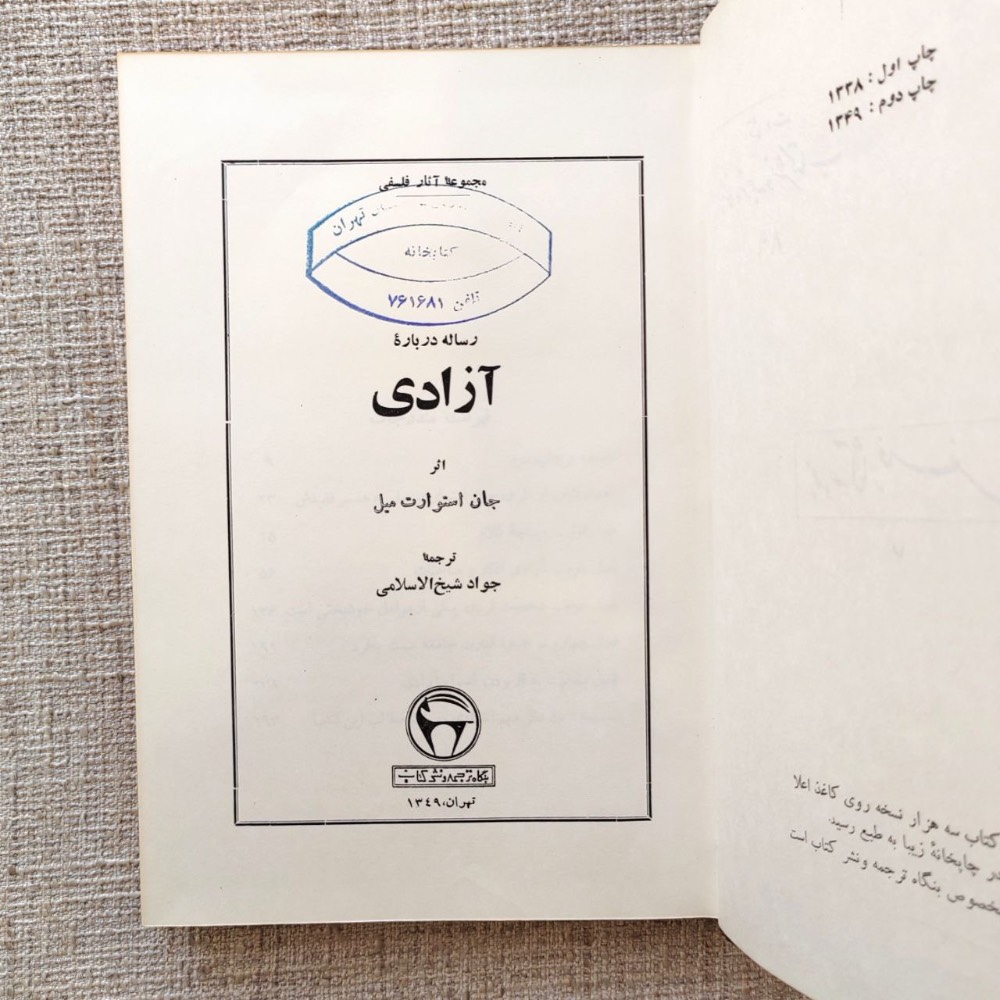 چاپ اول : ۱۳۳۸
چاپ دوم : ۱۳۴۹
کتاب سه هزار نسخه روی کاغذ اعلا
در چاپخانهٔ زیبا به طبع رسید.
مخصوص بنگاه ترجمه ونشر کتاب است
مجموعهٔ آثار فلسفی
تهران
کتابخانه
تلفن ۷۶۱۶۸۱
رساله دربارهٔ
آزادی
اثر
جان استوارت میل
ترجمهٔ
جواد شیخ‌الاسلامی
بنگاه ترجمه و نشر کتاب
تهران، ۱۳۴۹